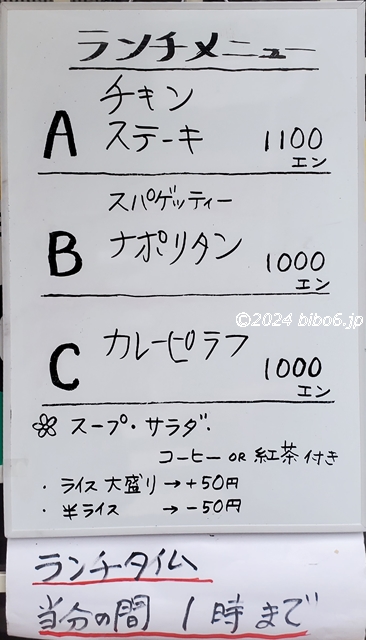 ランチメニュー
チキン
A ステーキ 1100
エン
スパゲッティー
B ナポリタン 1000
エン
©2024 bibo6.jp
C カレーピラフ 1000
エン
❀ スープ・サラダ・
コーヒー OR 紅茶付き
・ライス大盛り→+50円
・半ライス →-50円
ランチタイム
当分の間 1時まで